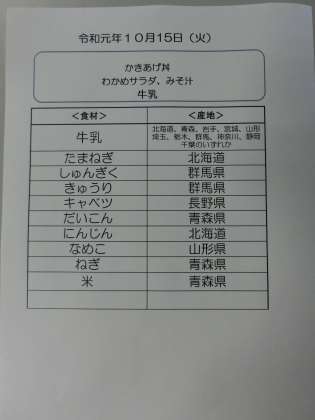 令和元年１０月１５日（火）
かきあげ丼
わかめサラダ、みそ汁
牛乳
＜食材＞ ＜産地＞
牛乳 北海道、青森、岩手、宮城、山形
埼玉、栃木、群馬、神奈川、静岡
千葉のいずれか
たまねぎ 北海道
しゅんぎく 群馬県
きゅうり 群馬県
キャベツ 長野県
だいこん 青森県
にんじん 北海道
なめこ 山形県
ねぎ 青森県
米 青森県